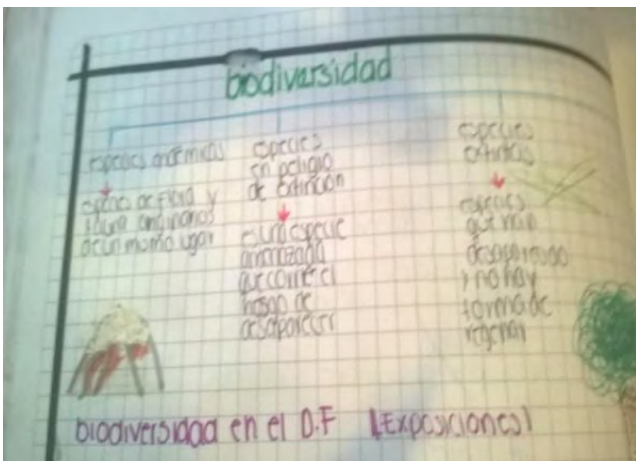 biodiversidad
especies endemicas
especies de flora y
fauna originarios
de un mismo lugar
especies
en peligro
de extinción
es una especie
amenazada
que corre el
riesgo de
desaparecer
especies
extintas
especies
que han
desaparecido
y no hay
forma de
biodiversidad en el D.F (Exposiciones)